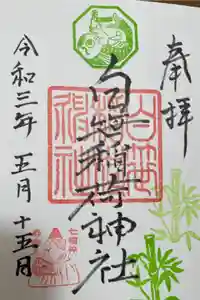 奉拝
白笹稲荷神社
令和三年 五月 十五日
七福神